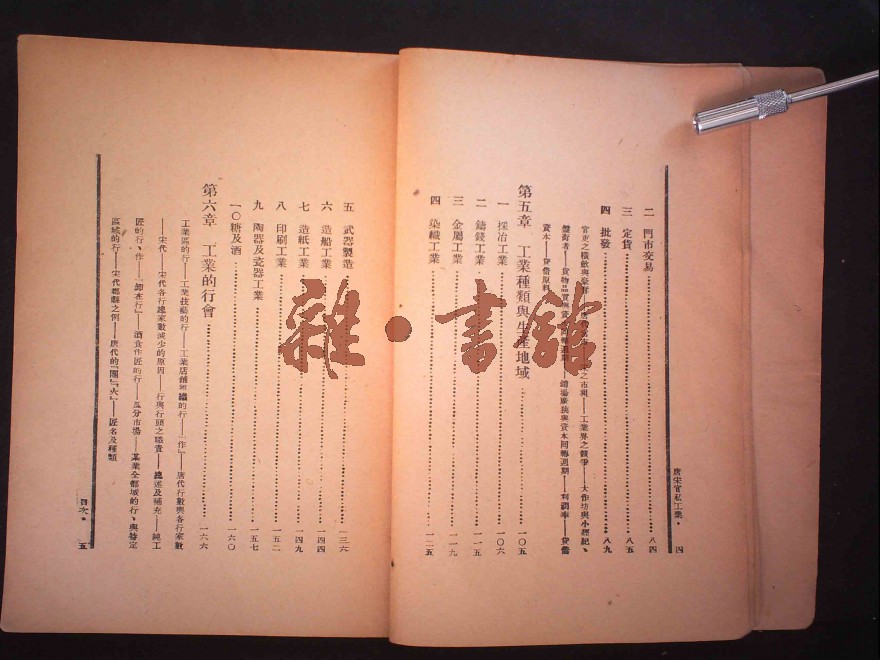 唐宋官私工業・ 四
二 門市交易 八四
三 定貨 八五
四 批發 八九
之市利——工業界之競爭——大作坊與小經紀、
盤街者——貨物品質與資 週期——鋪場廣狹與資本回轉週期——利潤率——貸借
資本——貸借原料
第五章 工業種類與生產地域 一〇五
一 採冶工業 一〇六
二 鑄錢工業 一一五
三 金屬工業 一一九
四 染織工業 一二五
五 武器製造 一三六
六 造船工業 一四四
七 造紙工業 一四九
八 印刷工業 一五二
九 陶器及瓷器工業 一五七
一〇糖及酒 一六〇
第六章 工業的行會 一六六
工業區的行——工業技藝的行——工業店鋪組織的行——「作」——唐代行數與各行家數
——宋代——宋代各行總家數減少的原因——行與行頭之職責——總述及補充——純工
匠的行、作——「卸在行」——酒食作匠的行——瓜分市場——某業全都城的行、與特定
區域的行——宋代鄉縣之例——唐代的「團」「火」——匠名及種類
目次・ 五
雜・書館